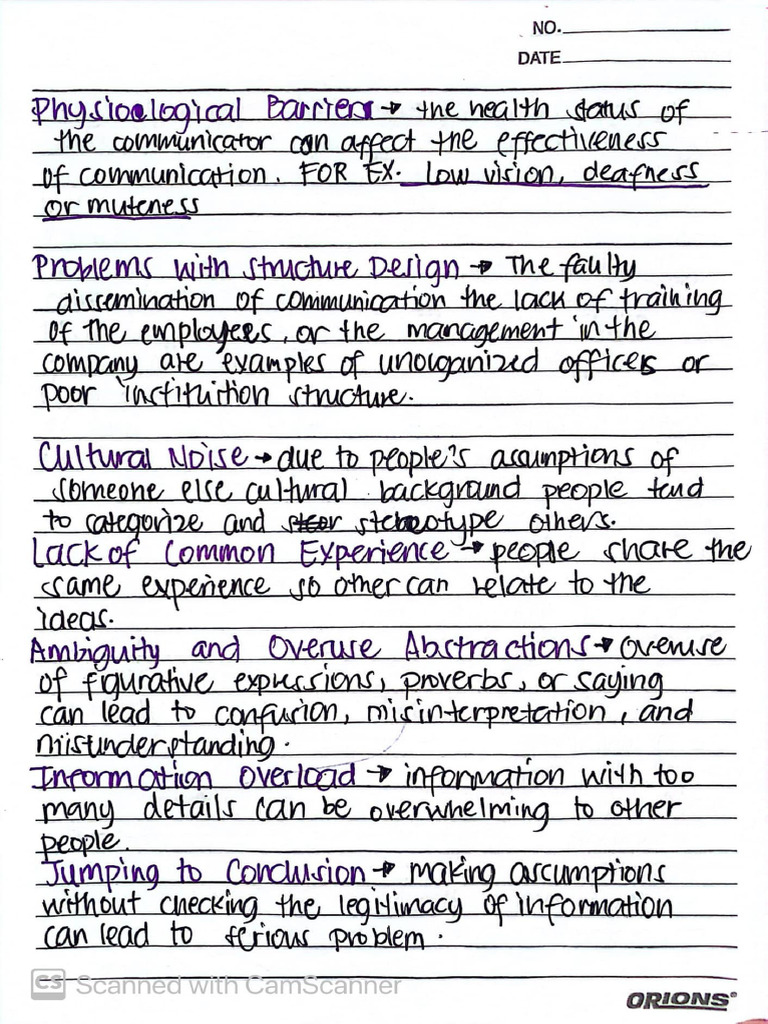 NO.
DATE
Physioological Barriers → the health status of
the communicator can affect the effectiveness
of communication. FOR EX. low vision, deafness
or muteness
Problems with Structure Design → The faulty
dissemination of communication the lack of training
of the employees, or the management in the
company are examples of unorganized officers or
poor instituition structure.
Cultural Noise → due to people's assumptions of
someone else cultural background people tend
to categorize and stereotype others.
Lack of Common Experience → people share the
same experience so other can relate to the
ideas.
Ambiguity and Overuse Abstractions → overuse
of figurative expressions, proverbs, or saying
can lead to confusion, misinterpretation, and
misunderstanding.
Information Overload → information with too
many details can be overwhelming to other
people.
Jumping to Conclusion → making assumptions
without checking the legitimacy of information
can lead to serious problem.
CS Scanned with CamScanner
ORIONS